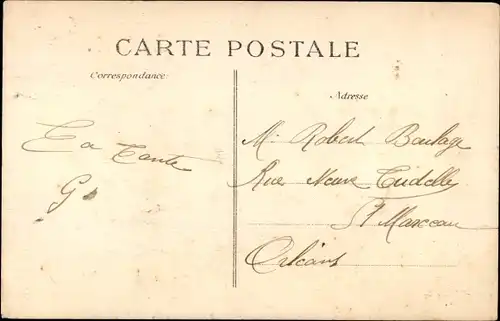 CARTE POSTALE
Correspondance
Adresse
Ta Tante
G
M. Robert Boulage
Rue Neuve Tudelle
St Marceau
Orléans